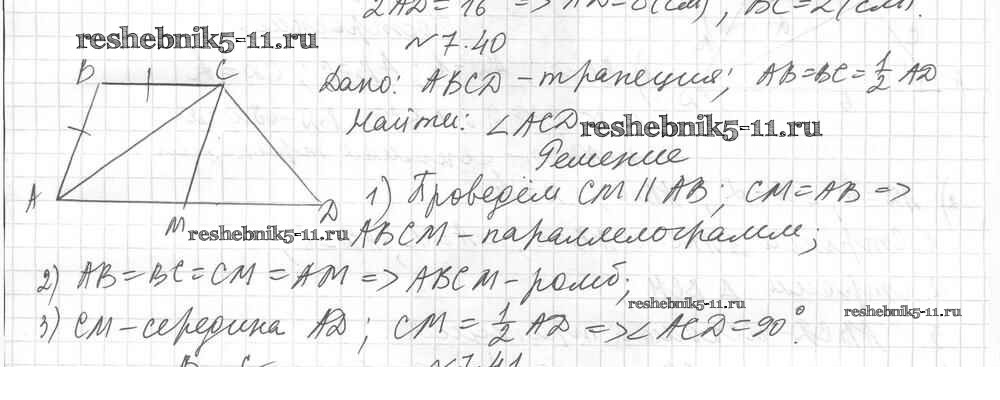 2AD = 16 => AD = 8 (см), BC = 2 (см).
reshebnik5-11.ru
№7.40
B C
Дано: ABCD - трапеция; AB=BC=1/2 AD
Найти: ∠ACD reshebnik5-11.ru
Решение
A M D
1) Проведём CM || AB; CM = AB =>
reshebnik5-11.ru ABCM - параллелограмм;
2) AB = BC = CM = AM => ABCM - ромб;
reshebnik5-11.ru
reshebnik5-11.ru
3) CM - середина AD; CM = 1/2 AD => ∠ACD = 90°.
B C №7.41